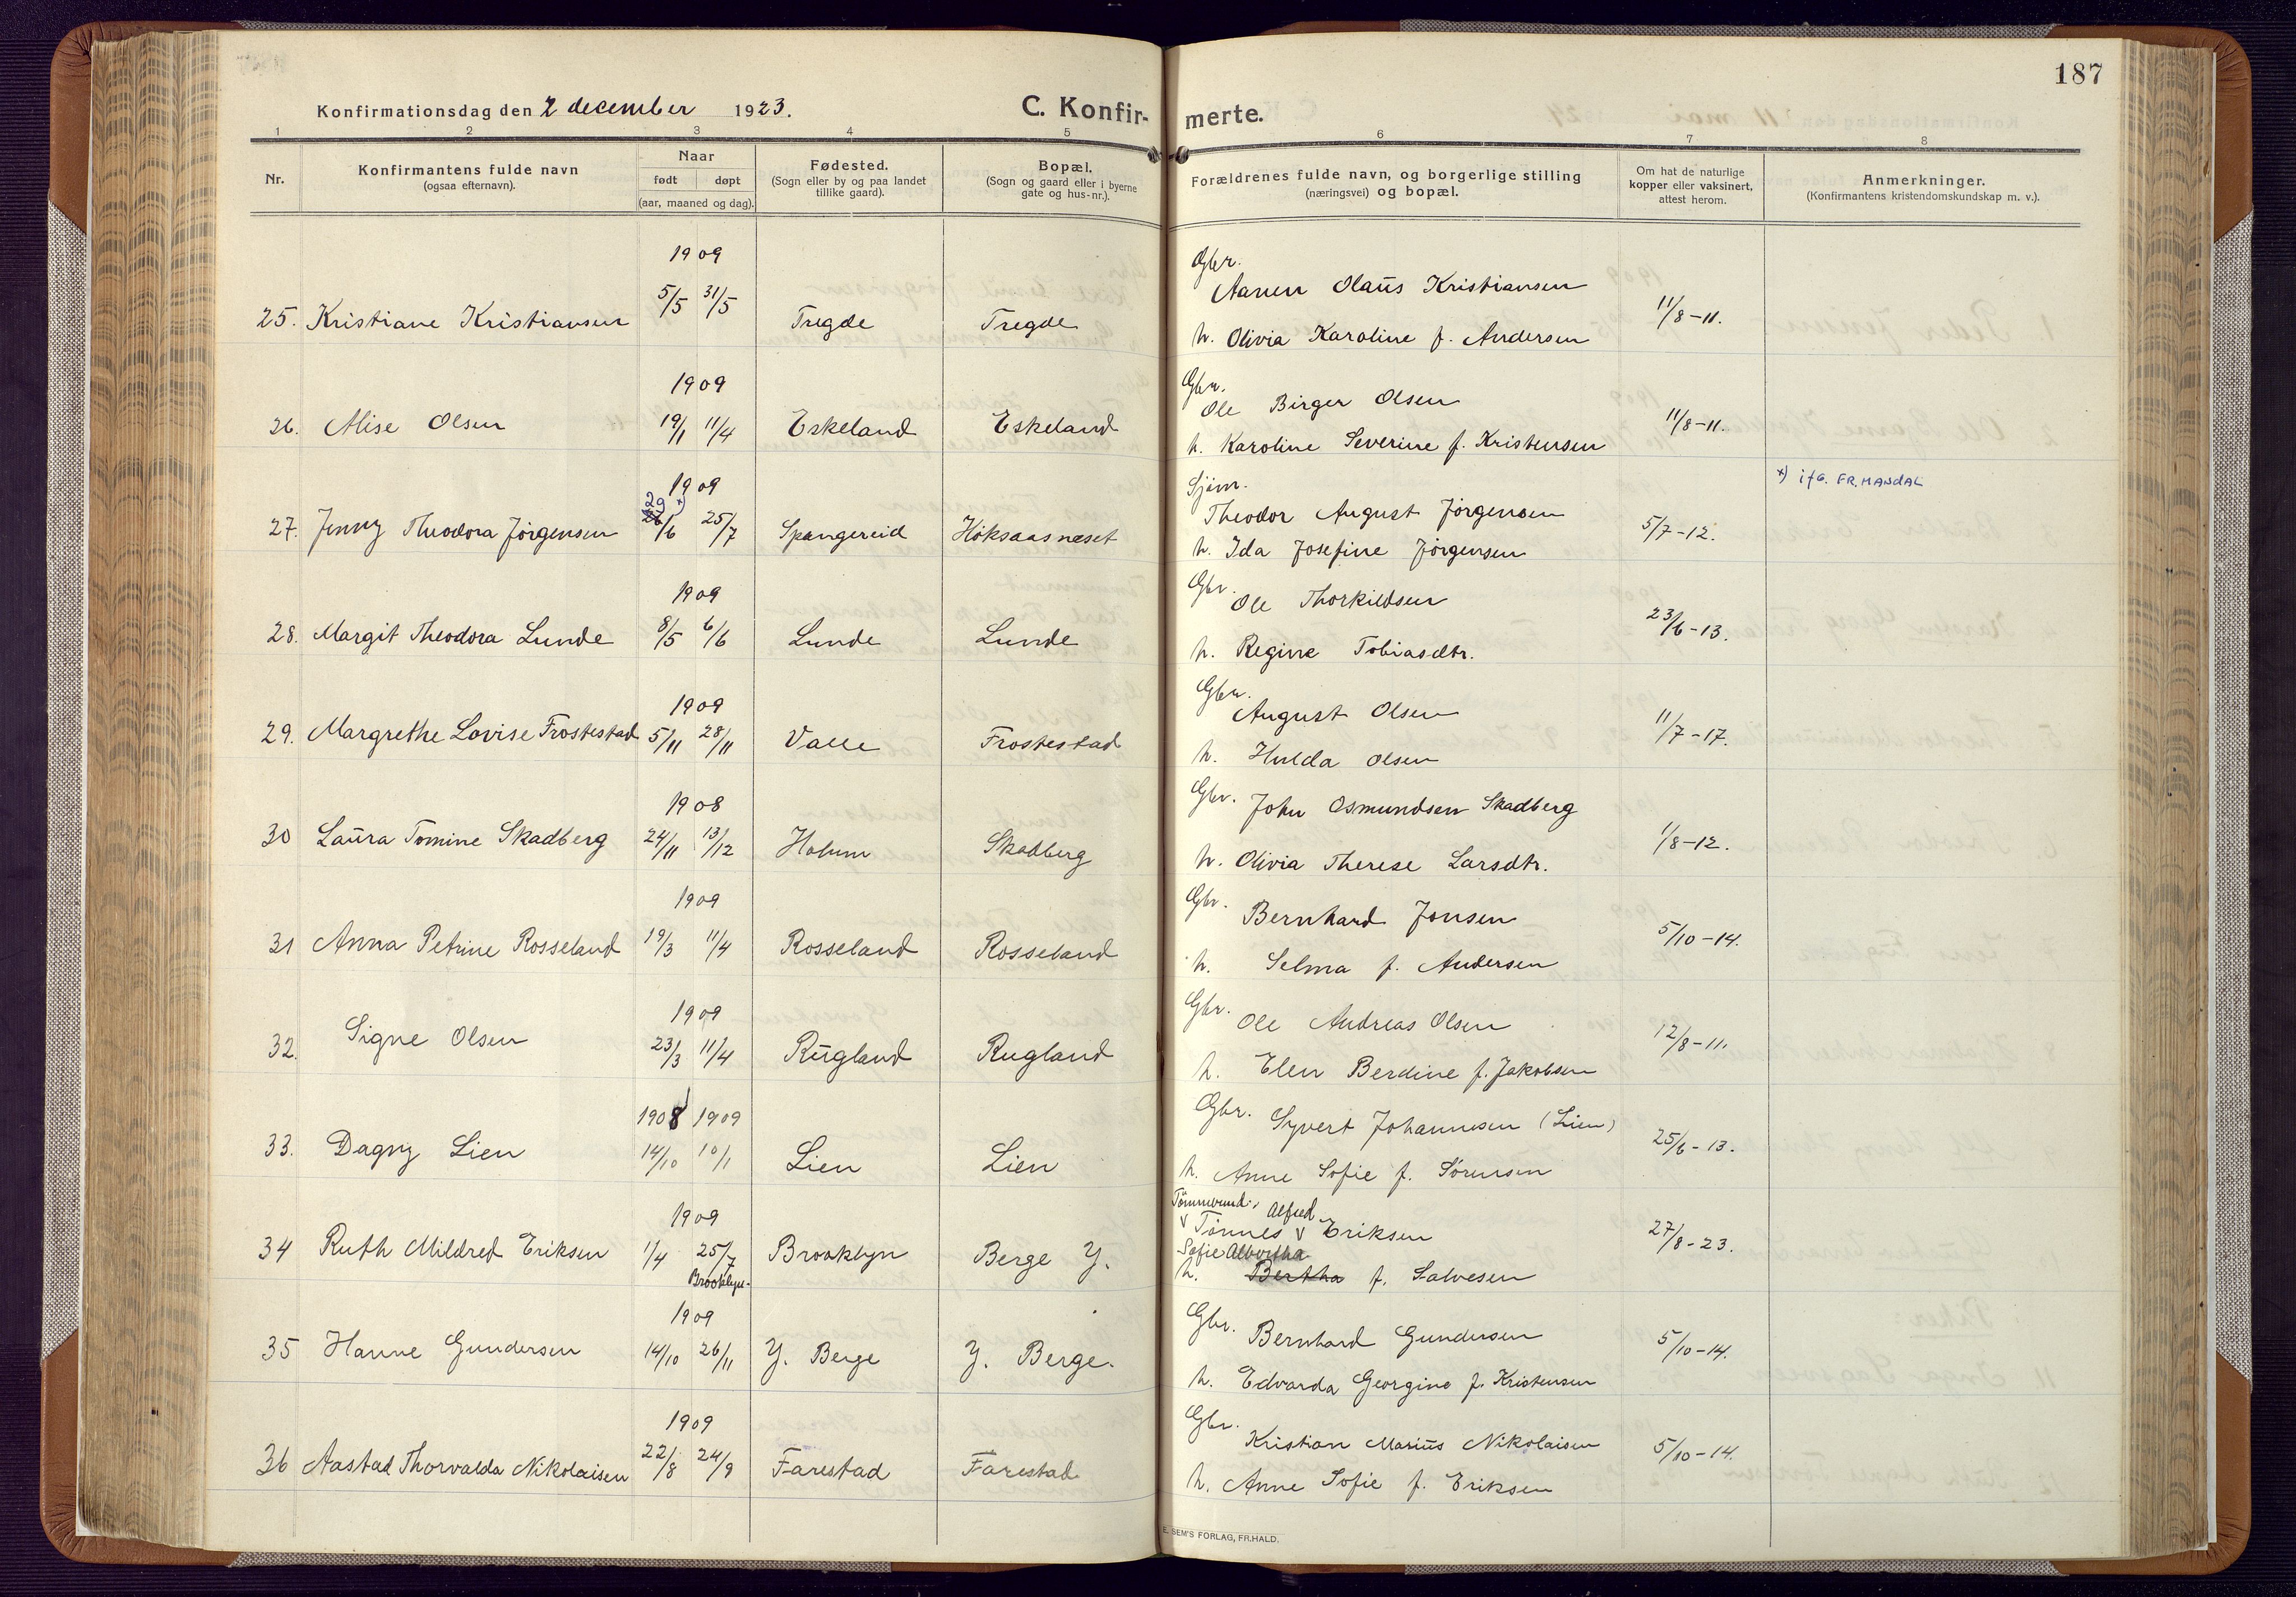 187
Konfirmationsdag den 2 december 1923.
C. Konfir-
merte.
1 2 3 4 5 6 7 8
Nr.
Konfirmantens fulde navn
(ogsaa efternavn).
Naar
født døpt
(aar, maaned og dag).
Fødested.
(Sogn eller by og paa landet
tillike gaard).
Bopæl.
(Sogn og gaard eller i byerne
gate og hus-nr.).
Forældrenes fulde navn, og borgerlige stilling
(næringsvei) og bopæl.
Om hat de naturlige
kopper eller vaksinert,
attest herom.
Anmerkninger.
(Konfirmantens kristendomskundskap m. v.).
1909
Gbr.
Aanen Olaüs Kristiansen
25. Kristiane Kristiansen 5/5 31/5 Tregde Tregde 11/8-11.
h. Olivia Karoline f. Andersen
1909
Gbr.
Ole Birger Olsen
26. Alise Olsen 19/1 11/4 Eskeland Eskeland 11/8-11.
h. Karoline Severine f. Kristensen
1909
Sjøm.
x) ifG. FR. MANDAL
29 x)
Theodor August Jørgensen
27. Jenny Theodora Jørgensen 26/6 25/7 Spangereid Høksaasnæset 5/7-12.
h. Ida Josefine Jørgensen
1909
Gbr.
Ole Thorkildsen
28. Margit Theodora Lunde 8/5 6/6 Lunde Lunde 23/6-13.
h. Regine Tobiasdtr.
1909
Gbr.
August Olsen
29. Margrethe Lovise Frostestad 5/11 28/11 Valle Frostestad 11/7-17.
h. Hulda Olsen
1908
Gbr. John Osmundsen Skadberg
30 Laüra Tomine Skadberg 24/11 13/12 Holum Skadberg 1/8-12.
h. Olivia Therese Larsdtr.
1909
Gbr.
Bernhard Jonsen
31 Anna Petrine Rosseland 19/3 11/4 Rosseland Rosseland 5/10-14.
h. Selma f. Andersen
1909
Gbr.
Ole Andreas Olsen
32. Signe Olsen 23/3 11/4 Rügland Rugland 12/8-11.
h. Elen Berdine f. Jakobsen
1908 1909
Gbr. Syvert Johannesen (Lien)
33. Dagny Lien 14/10 10/1 Lien Lien 25/6-13.
h. Anne Sofie f. Sørensen
1909
Tømmermd., Alfred
v Tønnes v Eriksen
34 Ruth Mildred Eriksen 1/4 25/7 Brooklyn Berge Y. 27/8-23.
Brooklyn-
Sofie Albertha
h. Bertha f. Salvesen
1909
Gbr.
Bernhard Gundersen
35 Hanne Gundersen 14/10 26/11 Y. Berge Y. Berge. 5/10-14.
h. Edvarda Georgine f. Kristensen
1909
Gbr.
Kristian Mariüs Nikolaisen
36 Aastad Thorvalda Nikolaisen 22/8 24/9 Farestad Farestad 5/10-14.
h. Anne Sofie f. Eriksen
E. SEM'S FORLAG, FR.HALD.